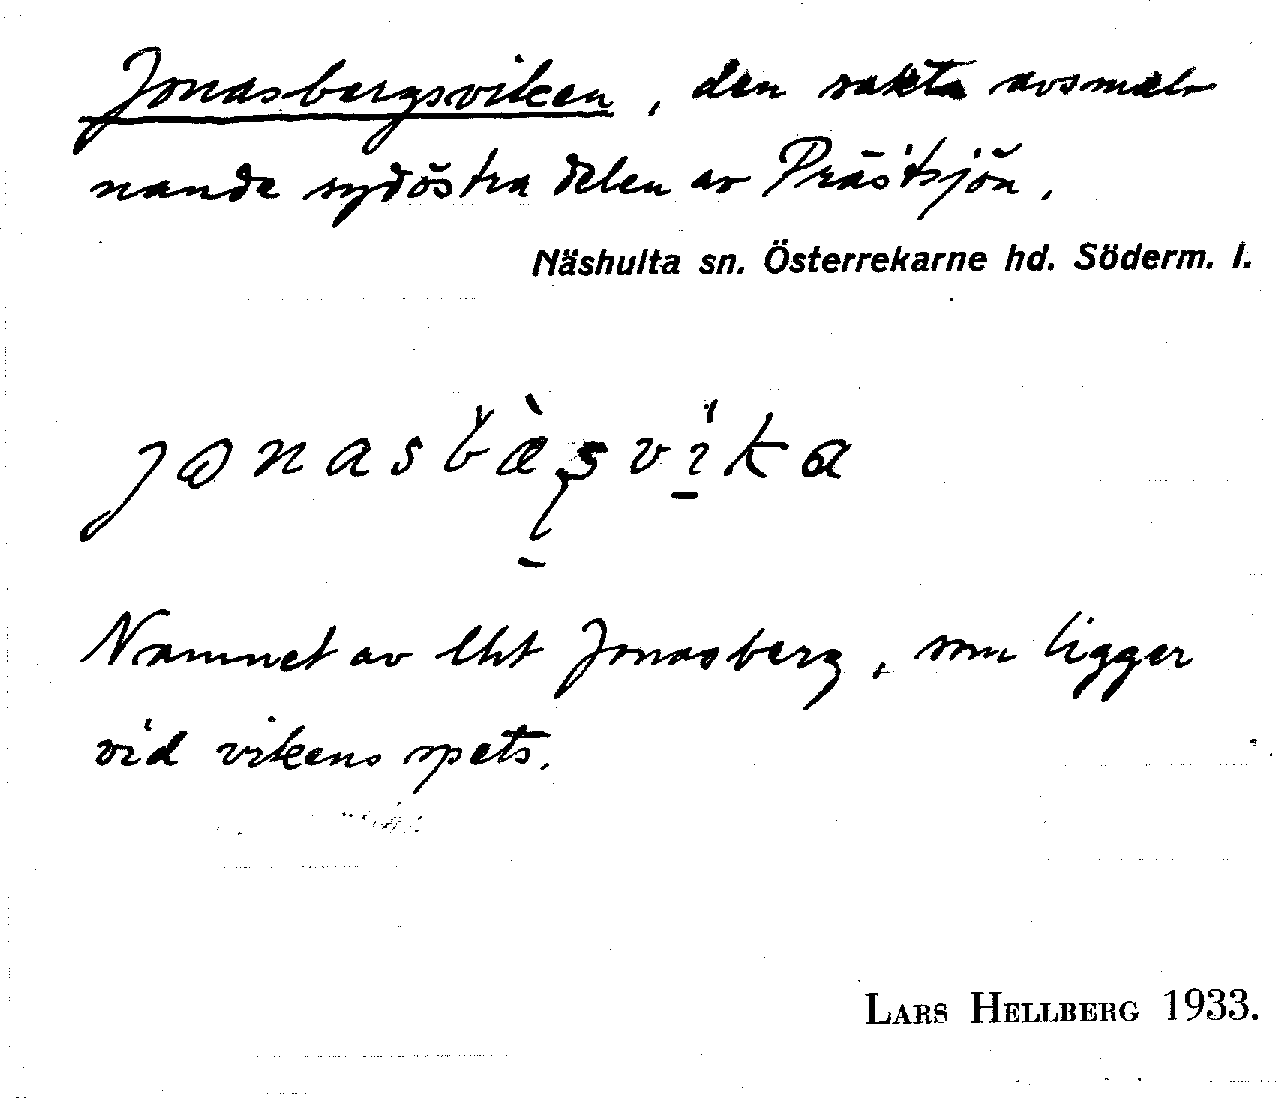 Jonasbergsviken, den sakta avsmal-
nande sydöstra delen av Prästsjön.
Näshulta sn. Österrekarne hd. Söderm. l.
Namnet av lht Jonasberg, som ligger
vid vikens spets.
LARS HELLBERG 1933.